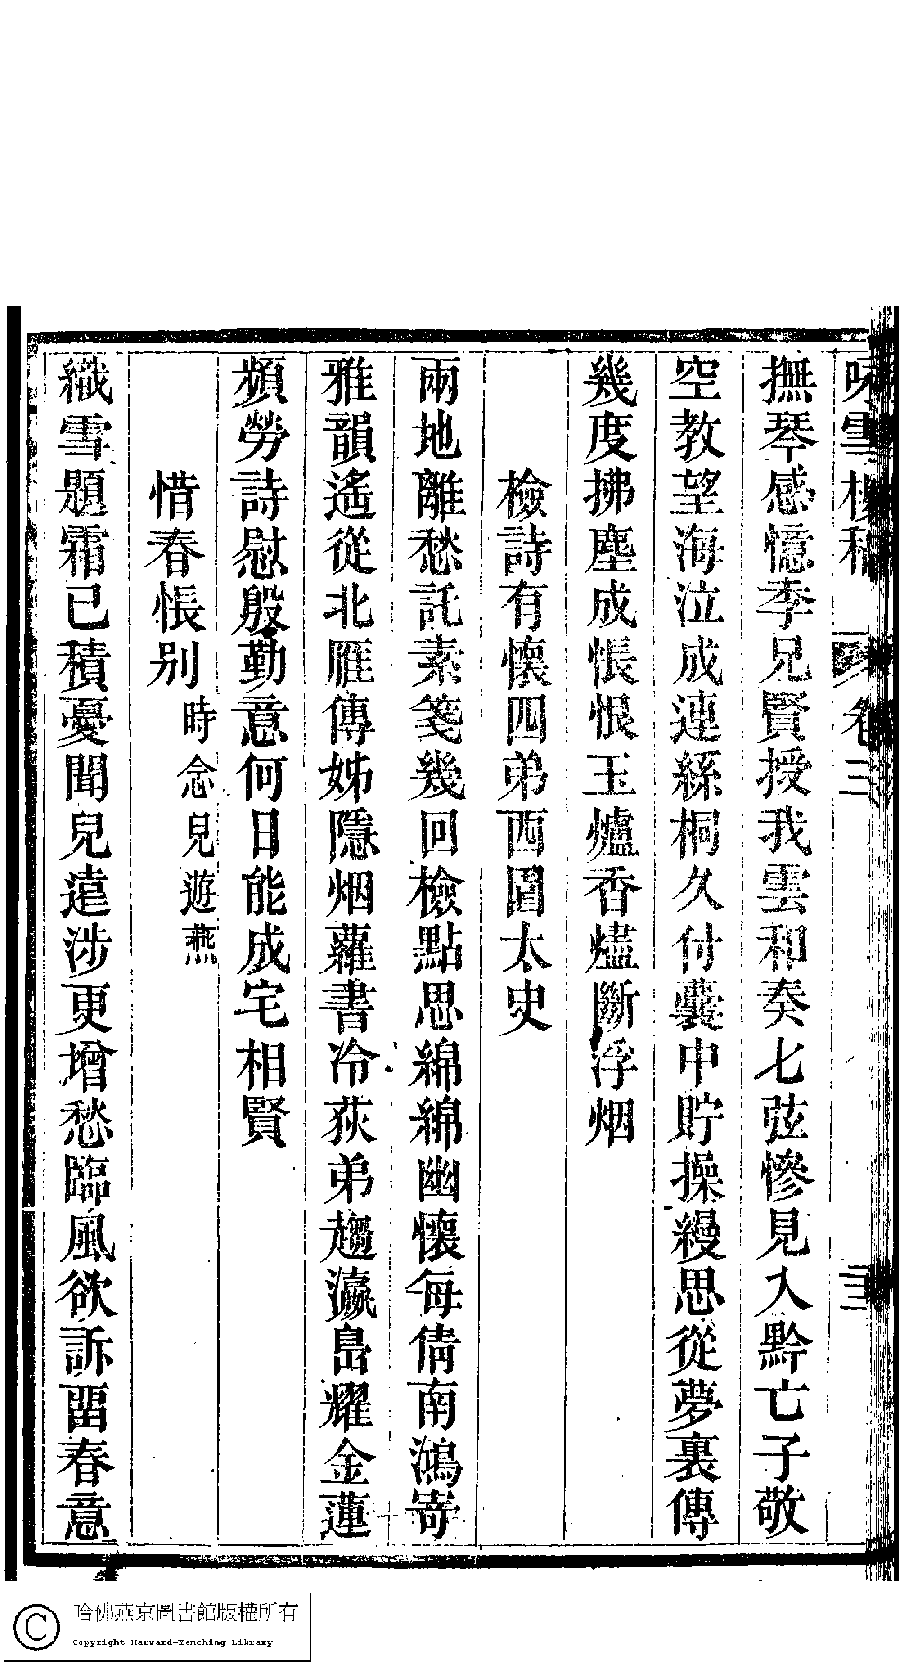 咏雪樓稿 卷三 三
撫琴感憶季兄賢授我雲和奏七弦慘見入黔亡子敬
空教望海泣成連絲桐久付囊中貯操縵思從夢裏傳
幾度拂塵成悵恨玉爐香燼斷浮烟
檢詩有懷四弟西圖太史
兩地離愁託素箋幾回檢點思綿綿幽懷每倩南鴻寄
雅韻遙從北雁傳姊隱烟蘿書冷荻弟趨瀛島耀金蓮
頻勞詩慰殷勤意何日能成宅相賢
惜春悵别時念兒遊燕
織雪題霜已積憂聞兒遠涉更增愁臨風欲訴留春意
哈佛燕京圖書館版權所有
Copyright Harvard-Yenching Library